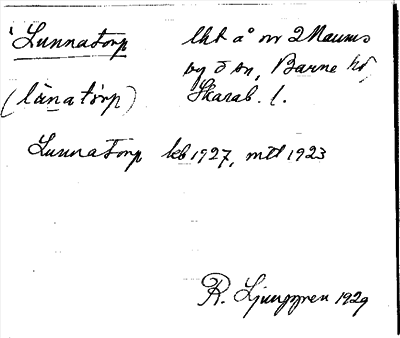 Lunnatorp lht å nr 2 Maums
by o sn, Barne hd,
(lànatórp) Skarab. l.
Lunnatorp kb 1927, mtl 1923
R. Ljunggren 1929